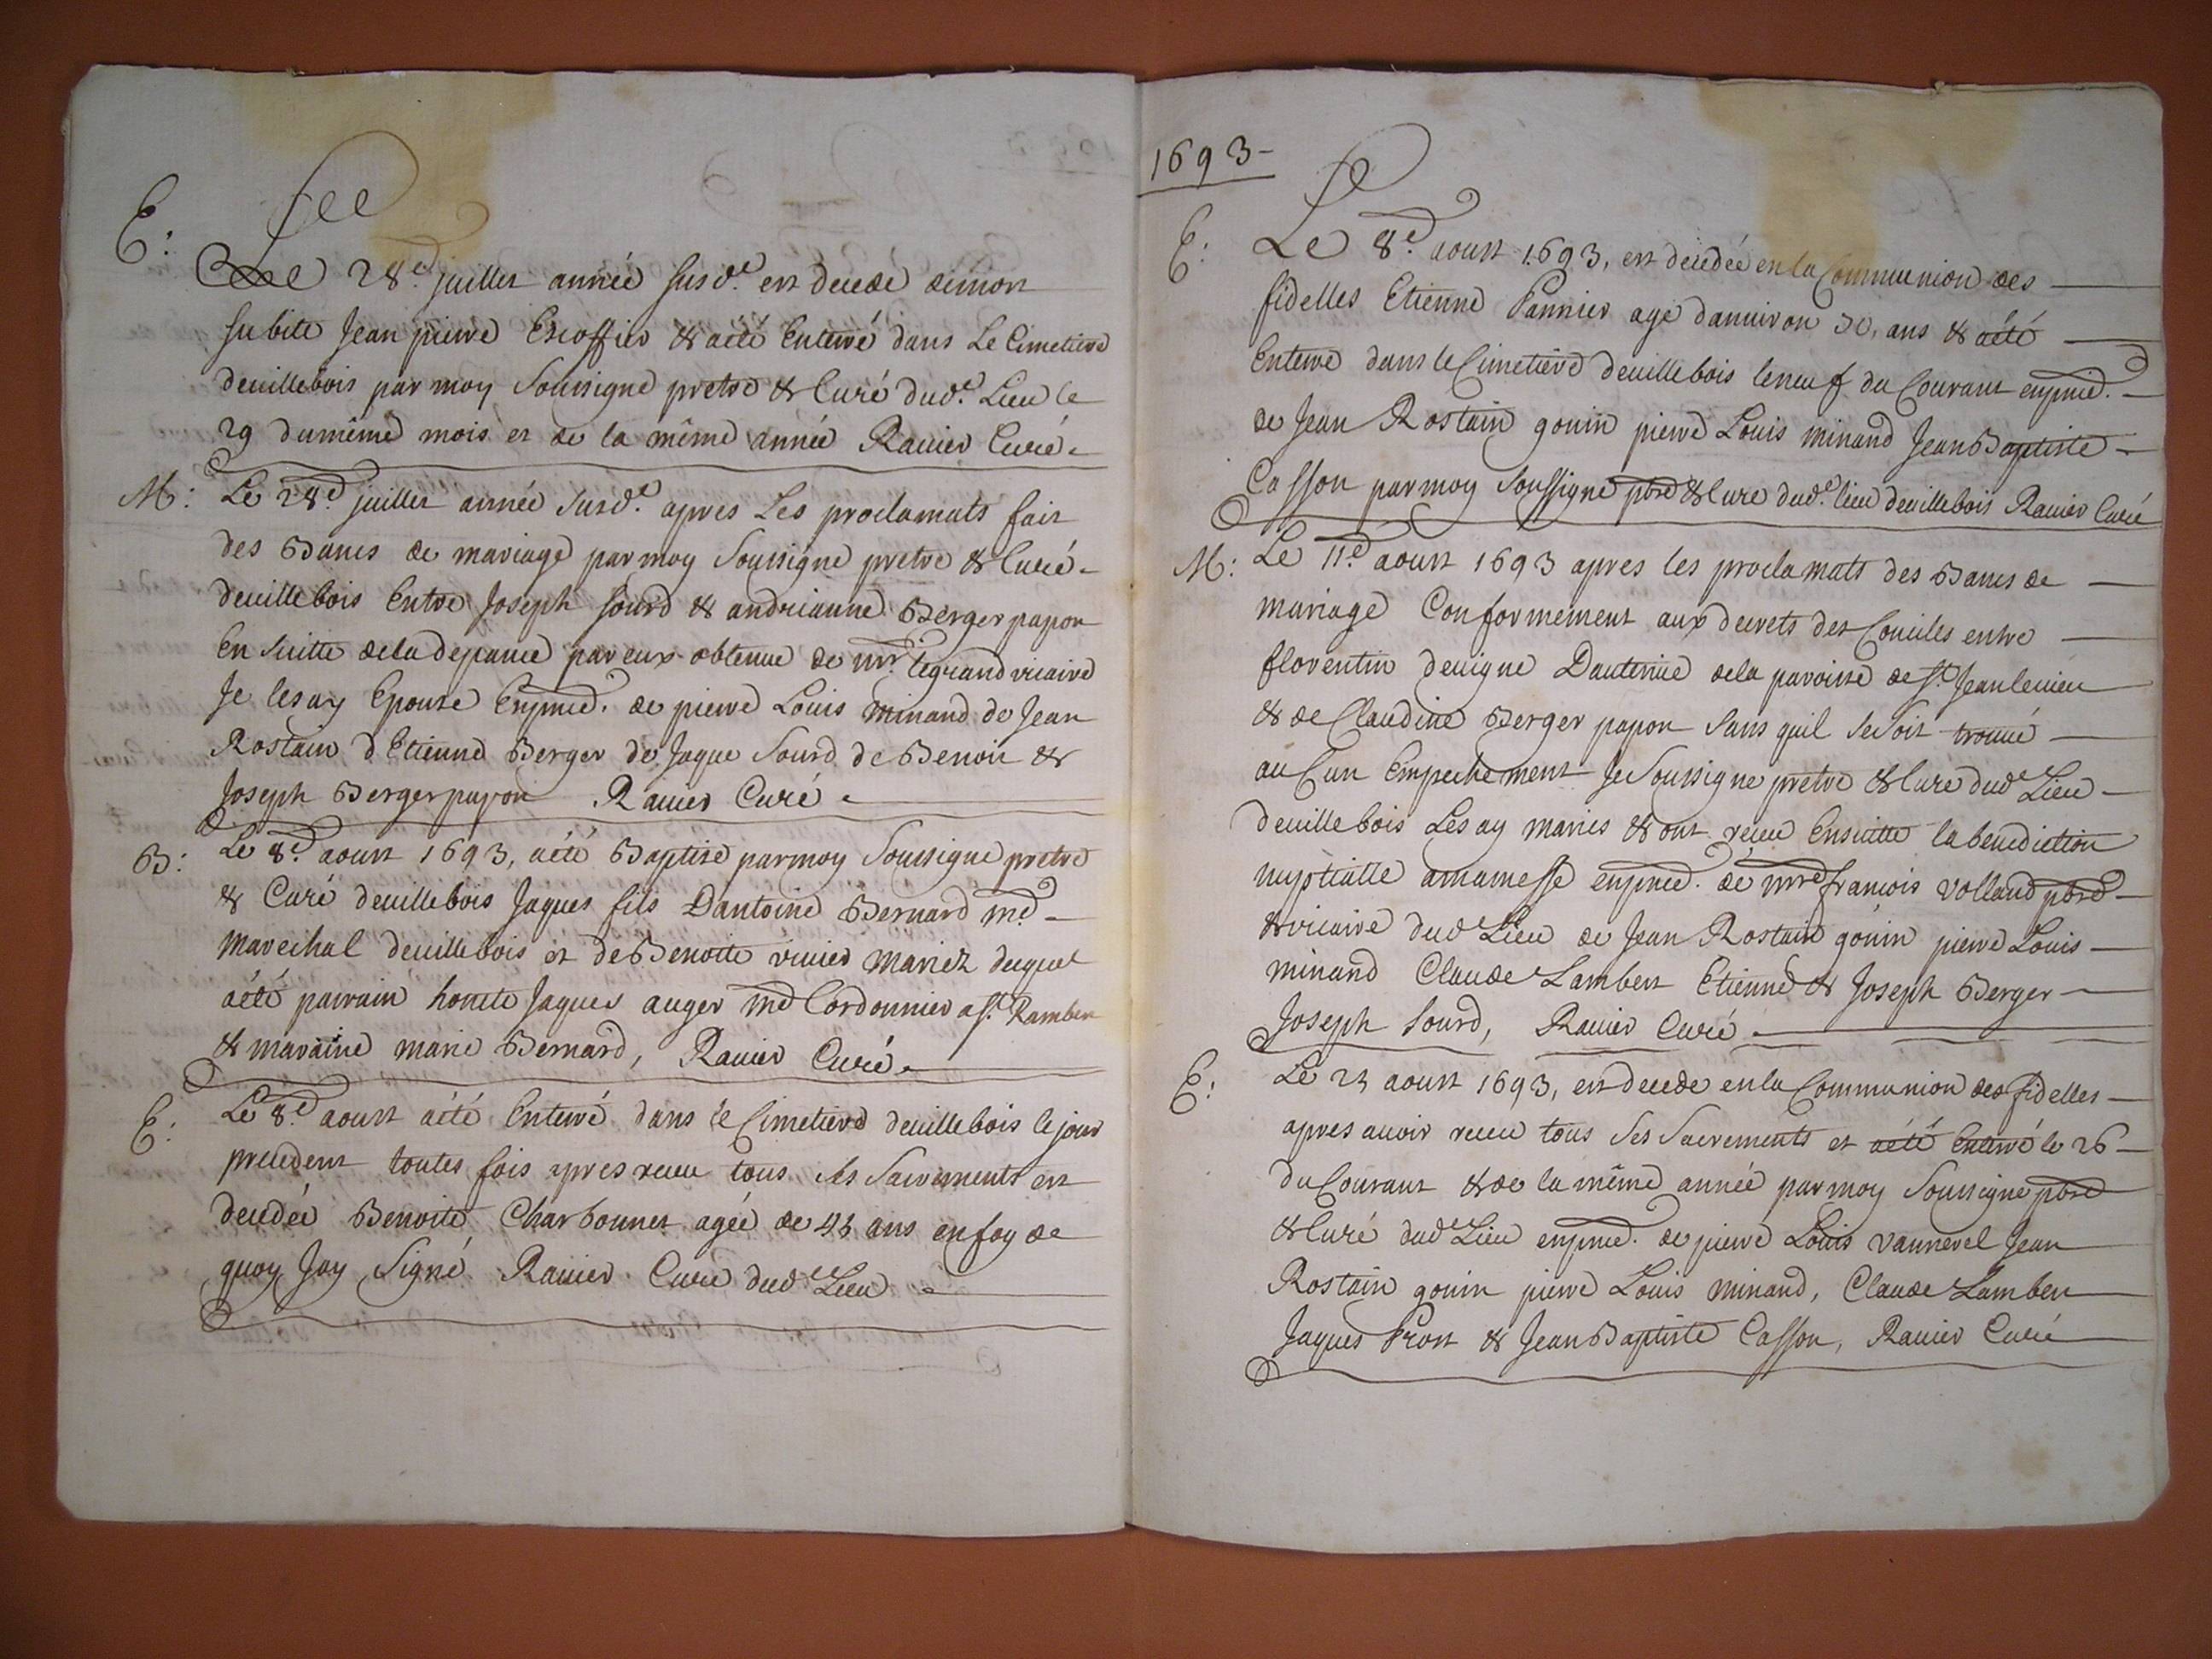 E:
Le 28.e juillet année susd.e est decedé demort
subite Jean pierre Escoffier & aété Enterré dans Le Cimetiere
deuillebois par moy Soussigné pretre & Curé dud.e Lieu le
29 dumême mois et de la même année Ravier Curé.
M: Le 28.e juillet année susd.e apres Les proclamats fait
des Bancs de mariage par moy Soussigné pretre & Curé
deuillebois Entre Joseph Sourd & andrianne Berger papon
En Suitte dela dspance par eux obtenue de mr. legrand vicaire
Je lesay Epousé Enpnce. de pierre Louis minand de Jean
Rostain d'Etienne Berger de Jaque Sourd de Benoit &
Joseph Berger papon Ravier Curé
B: Le 8.e aoust 1693, aété Baptisé parmoy Soussigné pretre
& Curé deuillebois Jaques fils Dantoine Bernard md
marechal deuillebois et de Benoite vivier mariez duquel
aété parrain honete Jaques auger md Cordonnier a St. Rambert
& maraine marie Bernard, Ravier Curé.
E: Le 8.e aoust aété Enterré dans le Cimetiere deuillebois le jour
precedent toutes fois apres receu tous ses Sacrements est
decedée Benoite Charbonnet agée de 45 ans enfoy de
quoy Jay Signé Ravier Curé dud Lieu
1693-
E: Le 8.e aoust 1693, est decedée en la Communion des
fidelles Etienne Pannier agé danviron 30, ans & aété
Enterré dans le Cimetiere deuillebois leneuf du Courant enpnce.
de Jean Rostain gonin pierre Louis minand Jean Baptiste
Casson parmoy Soussigné pbre & Curé dud.e lieu deuillebois Ravier Curé
M: Le 11.e aoust 1693 apres les proclamats des Bancs de
mariage Conformement aux decrets des Conciles entre
florentin devigne Dauterive dela paroisse de St. Jean levieu
& de Claudine Berger papon Sans quil se Soit trouvé
au Cun Empechement Je Soussigné pretre & Curé dud Lieu
deuillebois Les ay mariés & ont receu Ensuitte la benediction
nuptialle amamesse enpnce. de mre francois Volland pbre
& vicaire dud Lieu de Jean Rostain gonin pierre Louis
minand Claude Lambert Etienne & Joseph Berger
Joseph Sourd, Ravier Curé.
E: Le 25 aoust 1693, est decede enla Communion des fidelles
apres avoir receu tous Ses Sacrements et aété Enterré le 26
du Courant & de la même année par moy Soussigné pbre
& Curé dud Lieu enpnce. de pierre Louis vannerel Jean
Rostain gonin pierre Louis minand, Claude Lambert
Jaques Prost & Jean Baptiste Casson, Ravier Curé